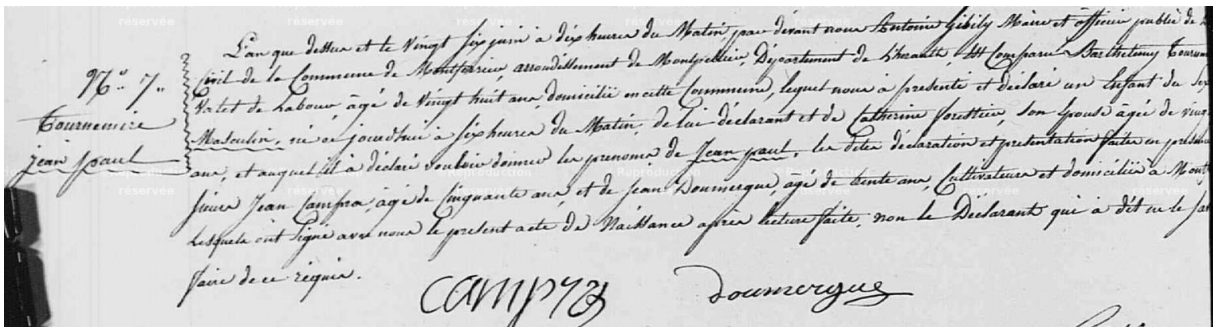 L'an que dessus et le vingt six juin à dix heures du Matin, par devant nous Antoine Gibily Maire et officier public de
N.º 7.
Civil de la Commune de Montferrier, arrondissement de Montpellier, Département de L'herault, Est Comparu Barthelemy
Valet de Labour âgé de vingt huit ans, domicilié en cette Commune, lequel nous à presenté et déclaré un Enfant du Sexe
Tournemire
jean paul
Masculin, né ce jourdhui à six heures du Matin, de lui déclarant et de Catherine son Epouse âgée de
ans, et auquel il à déclaré vouloir donner les prenoms de Jean paul. les dites déclaration et presentation faites en
sieurs Jean Campra, âgé de Cinquante ans, et de Jean Doumergue, agé de trente ans, Cultivateurs et domiciliés à
Lesquels ont signé avec nous le present acte de Naissance apres lecture faite, non le Déclarant qui à dit ne le
faire de ce requis.
Campra
Doumergue